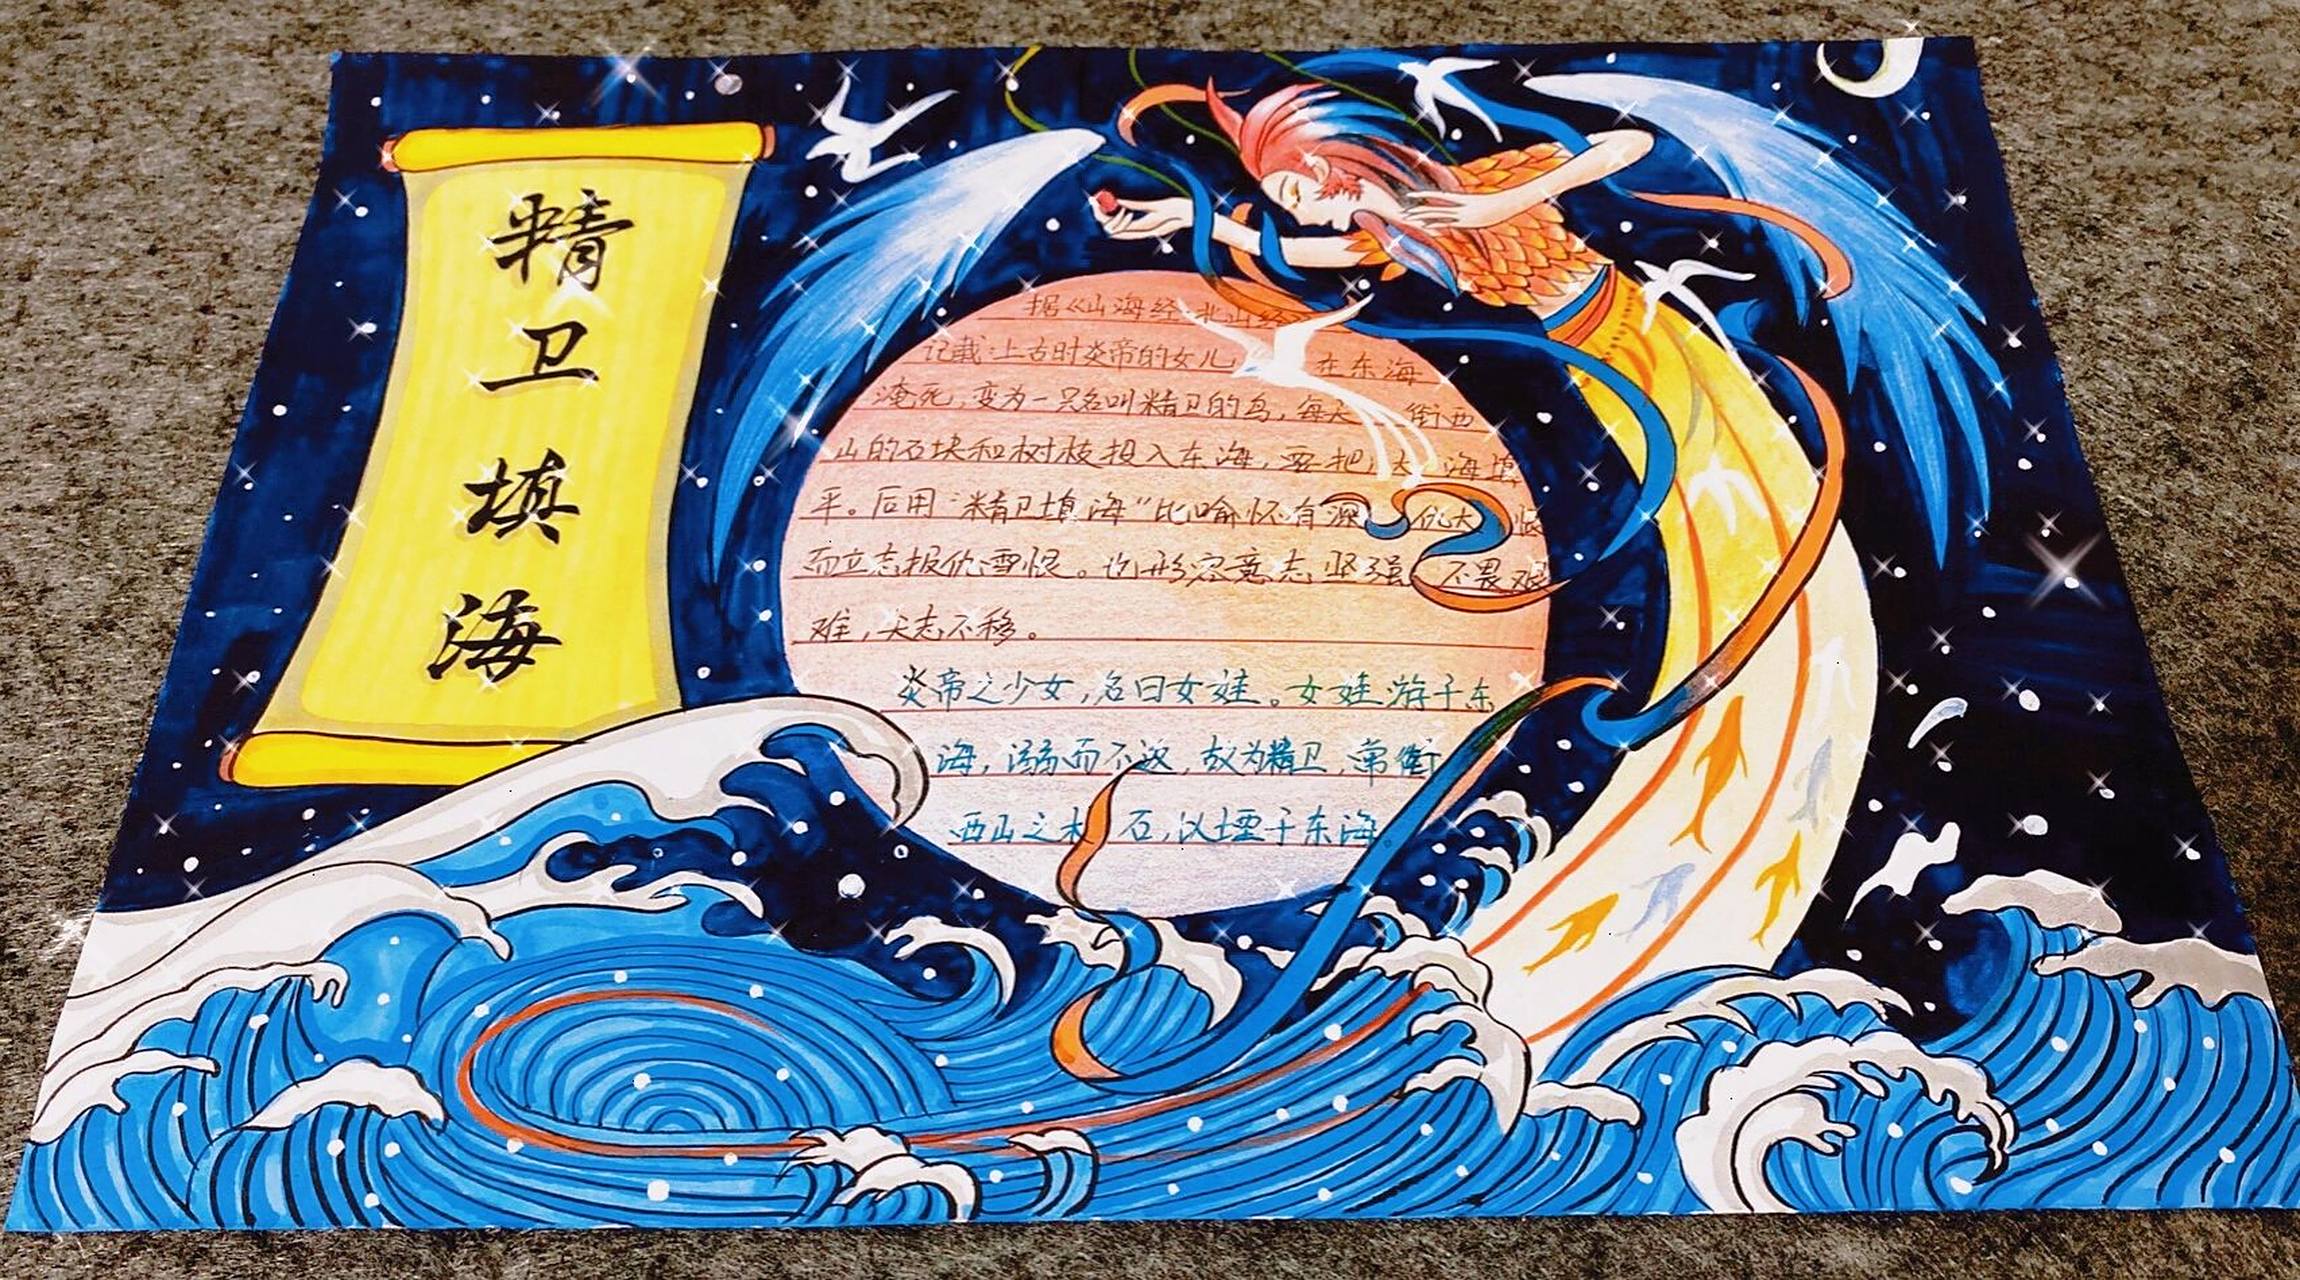 精卫填海
据《山海经·北山经》
记载:上古时炎帝的女儿在东海
淹死,变为一只名叫精卫的鸟,每天衔西
山的石块和树枝投入东海,要把大海填
平。后用“精卫填海”比喻怀有深仇大恨
而立志报仇雪恨。也形容意志坚强不畏艰
难,矢志不移。
炎帝之少女,名曰女娃。女娃游于东
海,溺而不返,故为精卫,常衔
西山之木石,以堙于东海